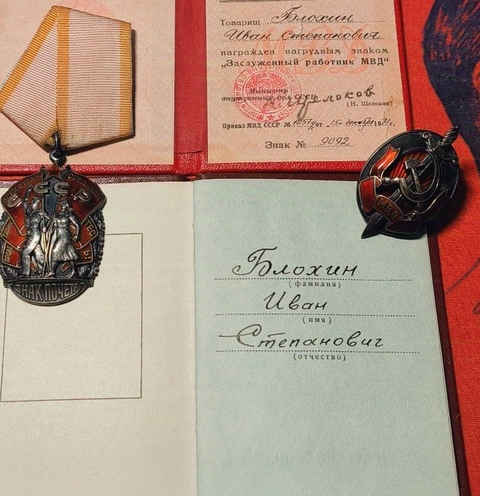 Товарищ Блохин
Иван Степанович
награжден нагрудным знаком
„Заслуженный работник МВД“
Министр
внутренних дел СССР
(Н. Щелоков)
Приказ МВД СССР №
Знак № 9092
СССР
ЗНАК ПОЧЕТА
Блохин
(фамилия)
Иван
(имя)
Степанович
(отчество)